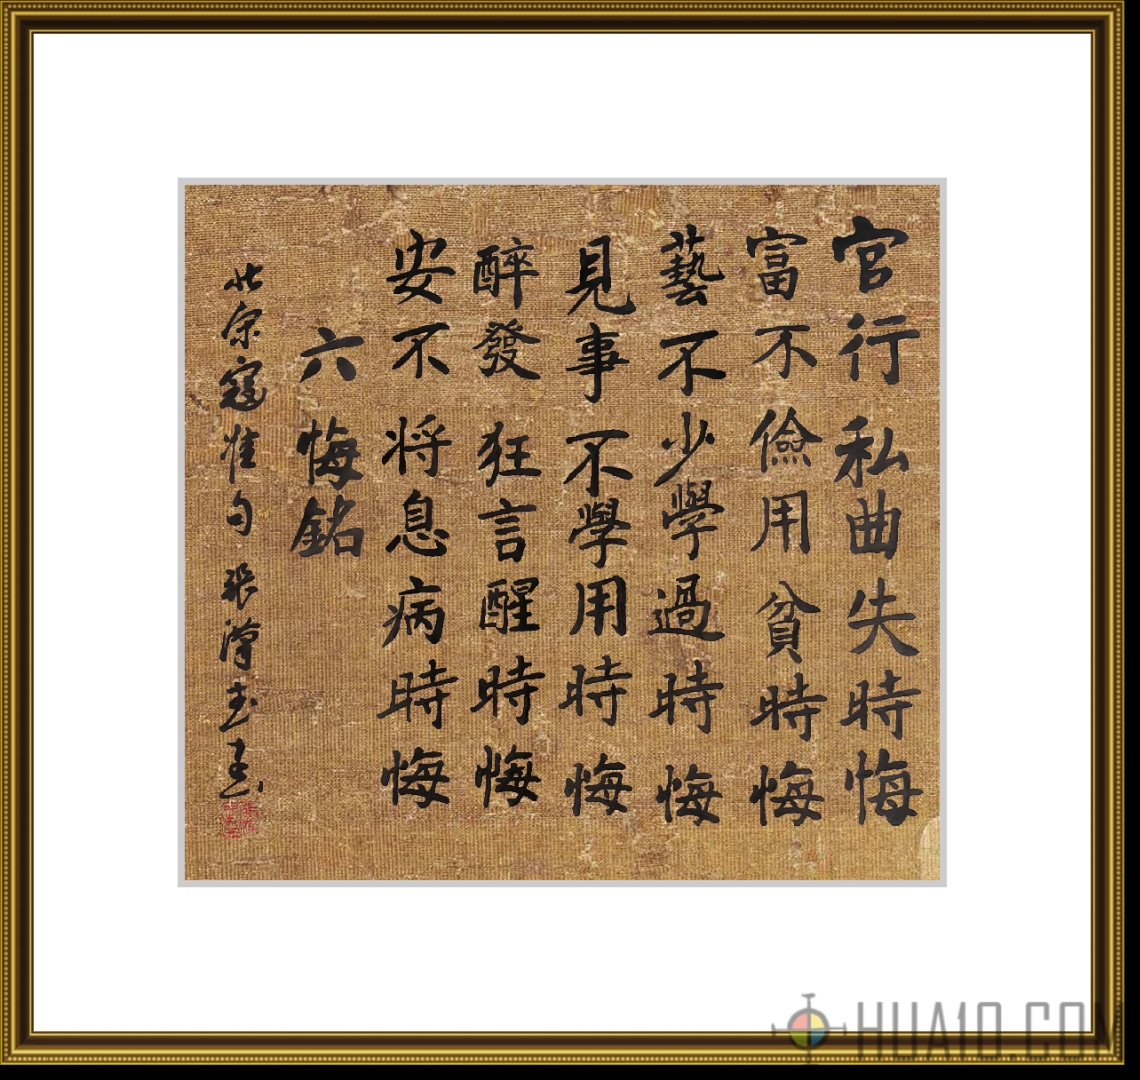 官行私曲失時悔
富不儉用貧時悔
藝不少學過時悔
見事不學用時悔
醉發狂言醒時悔
安不将息病時悔
六悔銘
北宋寇准句 張漢
HUA10.COM